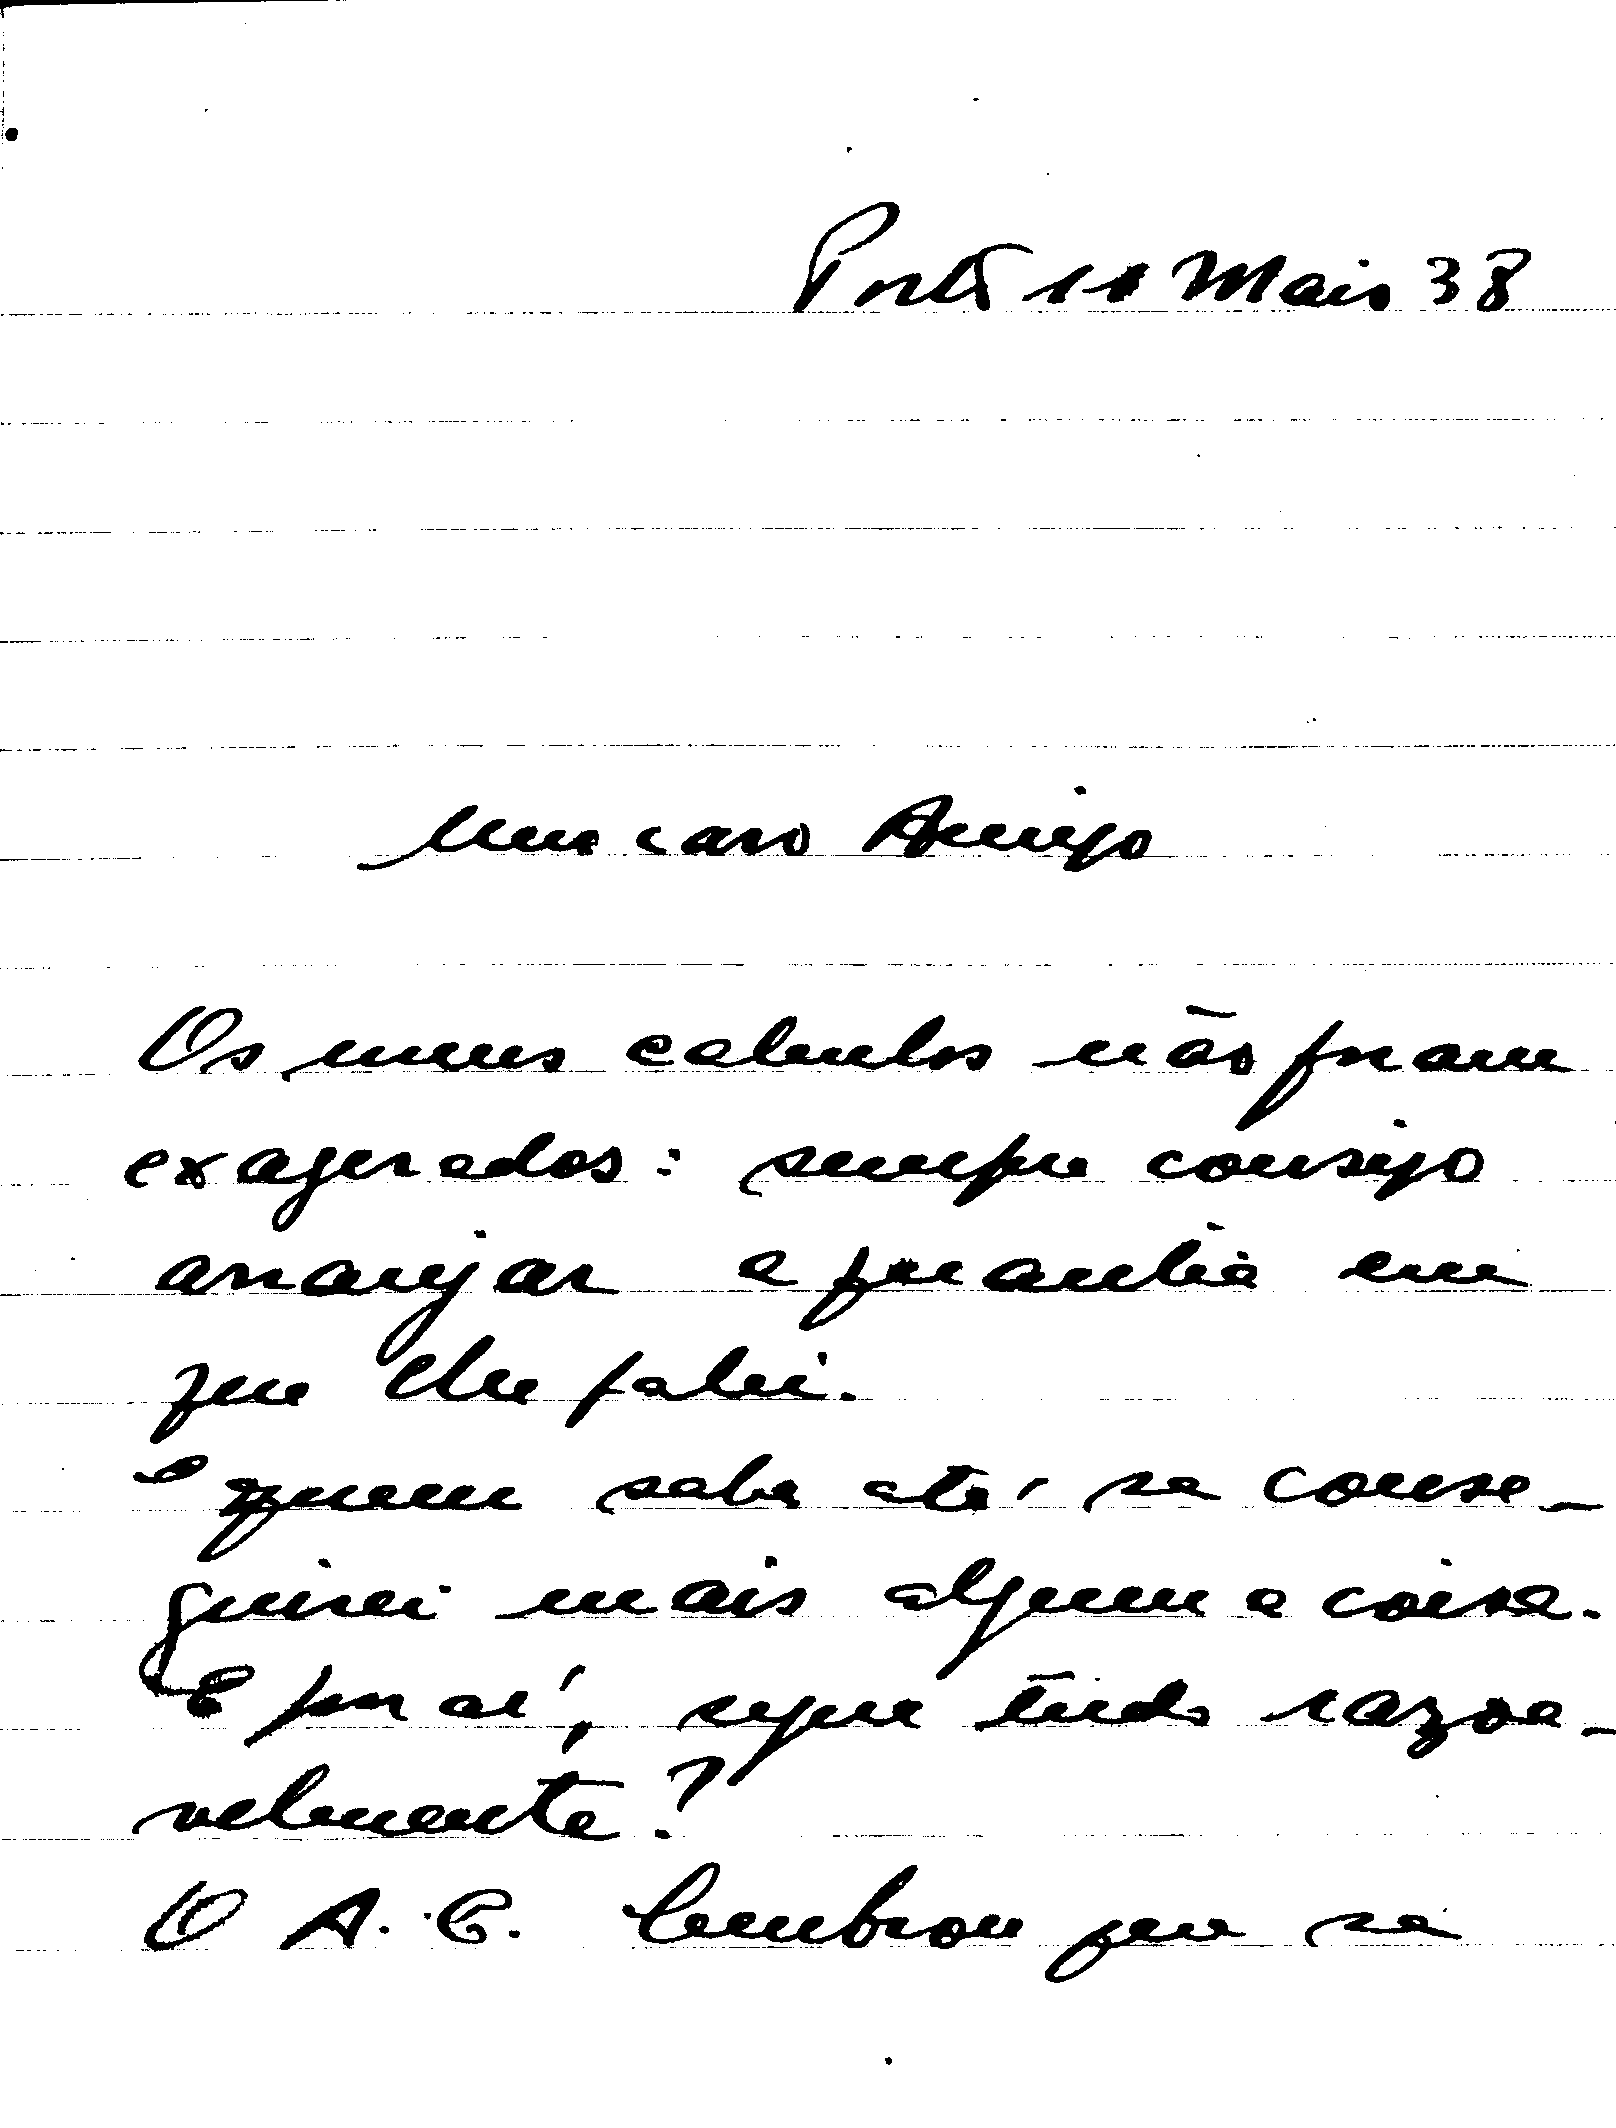 Porto 11 Maio 38
Meu caro Amigo
Os meus calculos não foram
exagerados: sempre consigo
arranjar a quantia em
que lhe falei.
E quem sabe até se conse-
guirei mais alguma coisa.
E por aí, segue tudo razoa-
velmente?
O A. C. lembrou que se